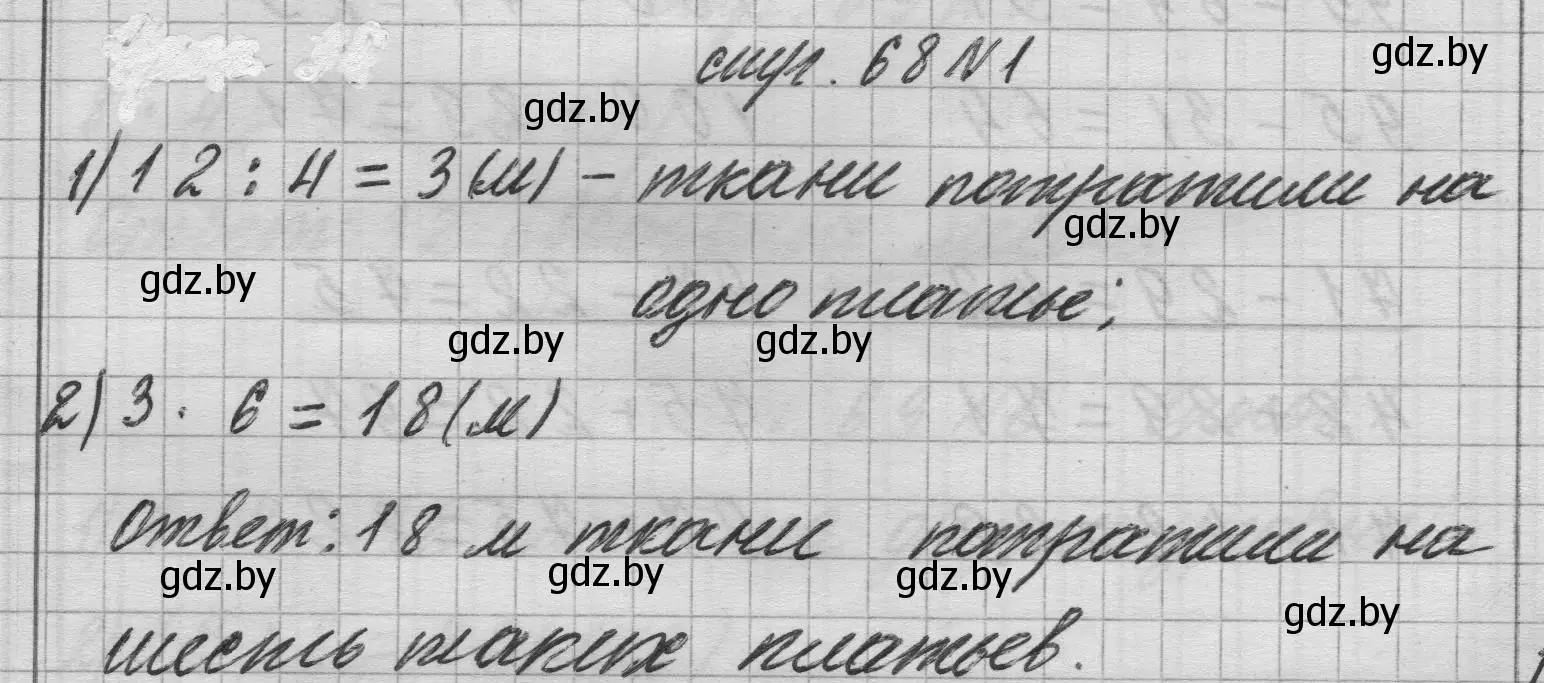 стр. 68 N 1
gdz.by
gdz.by
1) 12 : 4 = 3 (м) - ткани потратили на
gdz.by
gdz.by
одно платье;
gdz.by
gdz.by
2) 3 · 6 = 18 (м)
Ответ: 18 м ткани потратили на
gdz.by
gdz.by
gdz.by
gdz.by
шесть таких платьев.